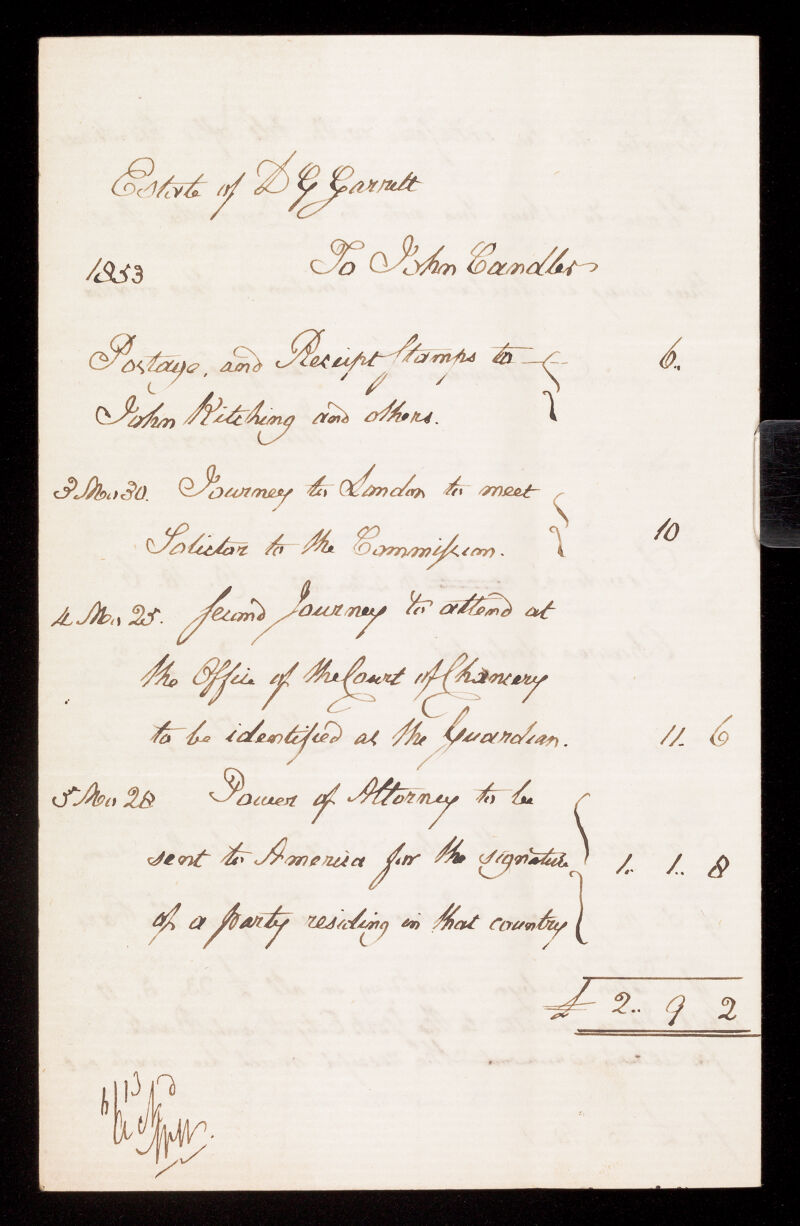 Estate of D G Garrett
To John Candler
1853
Postage, and Receipt Stamps to 6..
John Kitching and others.
3 Mo. 30. Journey to London to meet
Solictor to the Commission. 10
4 Mo. 25. Second Journey to attend at
the Office of the Court of Chancery
to be identified as the Guardian. 11. 6
5 Mo 28 Power of Attorney to be
sent to America for the signature 1. 1.. 8
of a party residing in that country
£ 2.. 9 2
6/13
Ackd